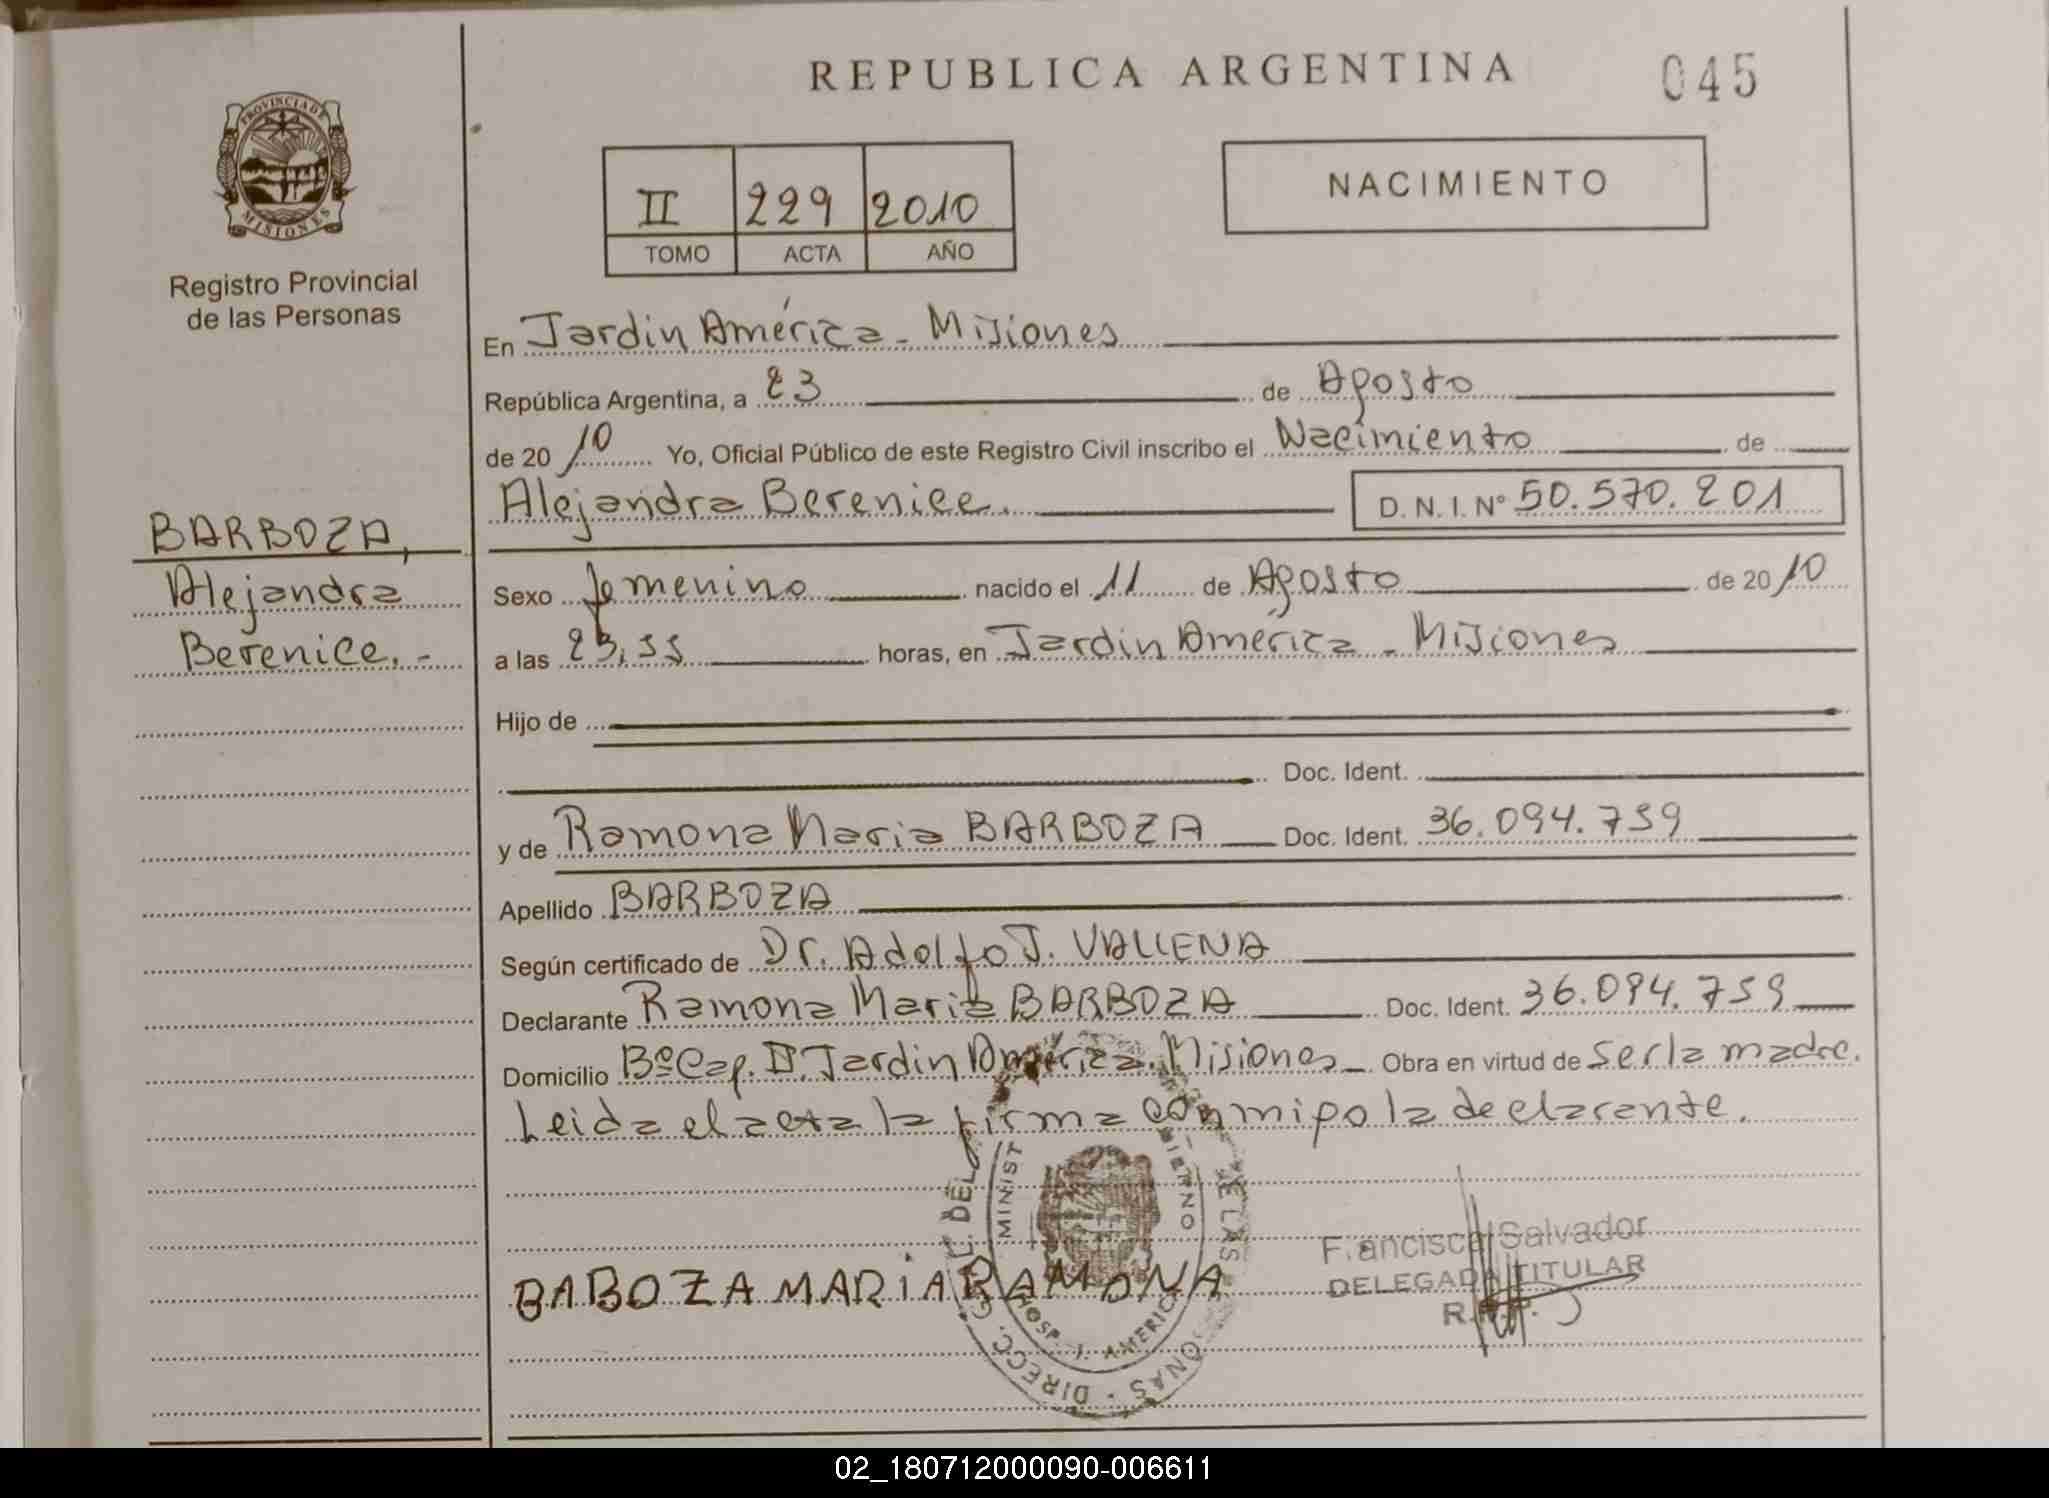 REPUBLICA ARGENTINA
045
PROVINCIA DE MISIONES
Registro Provincial
de las Personas
II 229 2010
TOMO ACTA AÑO
NACIMIENTO
En Jardin América - Misiones
República Argentina, a 23 de Agosto
de 20 10 Yo, Oficial Público de este Registro Civil inscribo el Nacimiento de
Alejandra Berenice. D.N.I. Nº 50.570.201
BARBOZA,
Alejandra
Berenice.-
Sexo femenino nacido el 11 de Agosto de 20 10
a las 23,55 horas, en Jardin América - Misiones
Hijo de
Doc. Ident.
y de Ramona Maria BARBOZA Doc. Ident. 36.094.759
Apellido BARBOZA
Según certificado de Dr. Adolfo J. VALLENA
Declarante Ramona Maria BARBOZA Doc. Ident. 36.094.759
Domicilio Bº Cap. II. Jardin América. Misiones Obra en virtud de ser la madre.
Leida el acta la firma conmigo la declarante.
BABOZA MARiA RAMONA
DIRECC. GRAL. DEL DE LAS ONAS
MINIST BIERNO
HOSP. J. AMERICA
Francisca Salvador
DELEGADA TITULAR
02_180712000090-006611